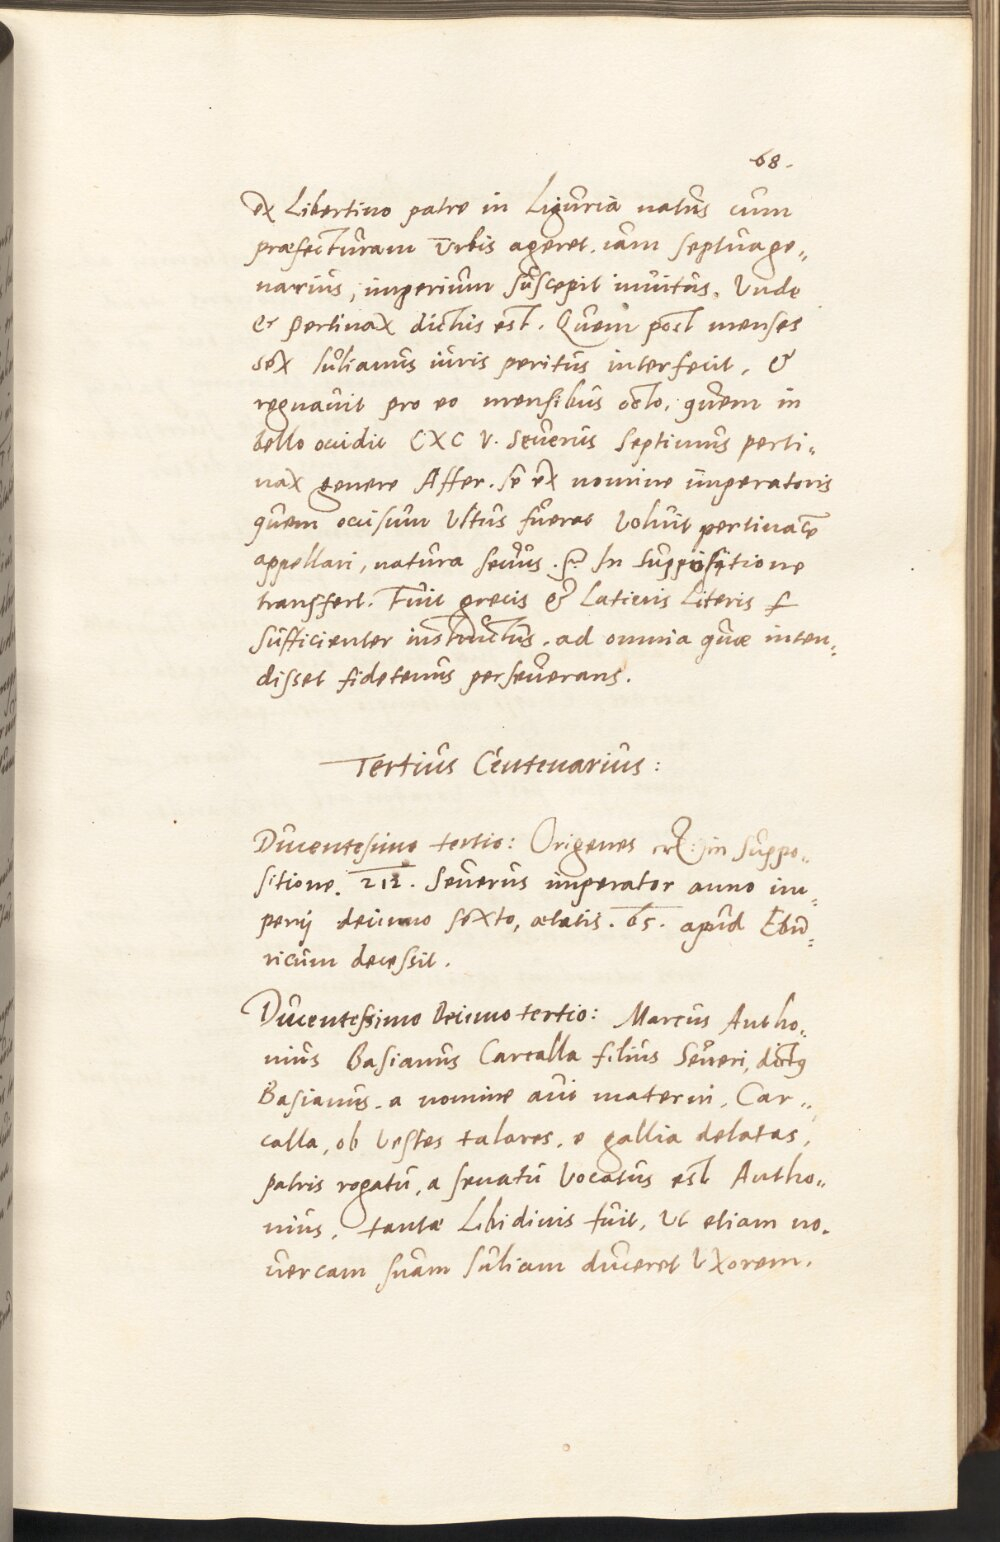 68.
ex Libertino patre in Liguria natus cum
præfecturam Urbis ageret. iam septuage„
narius, imperium suscepit invitus. Unde
& Pertinax dictus est. Quem post menses
sex Iulianus iuris peritus interfecit, &
regnavit pro eo mensibus octo, quem in
bello occidit CXCV. Severus Septimus perti„
nax genere Affer. se ex nomine imperatoris
quem occisum Ultus fuerat Voluit pertinacē
appellari, natura sevus. In suppositione
transfert. Fuit grecis & Latinis Literis
sufficienter instructus. ad omnia quæ inten„
disset fidetenus perseverans.
Tertius Centenarius:
Ducentesimo tertio: Origenes in suppo„
sitione. 212. Severus imperator anno im„
perij decimo sexto, ætatis. 65. apud Ebu„
ricum decessit.
Ducentessimo Decimo tertio: Marcus Antho„
nius Basianus Carcalla filius Severi, dictus
Basianus. a nomine avi materni, Car„
calla, ob Vestes talares, e gallia delatas,
patris rogatu, a senatu Vocatus est Antho„
nius, tantæ Libidinis fuit, Ut etiam no„
vercam suam Iuliam duceret Uxorem.